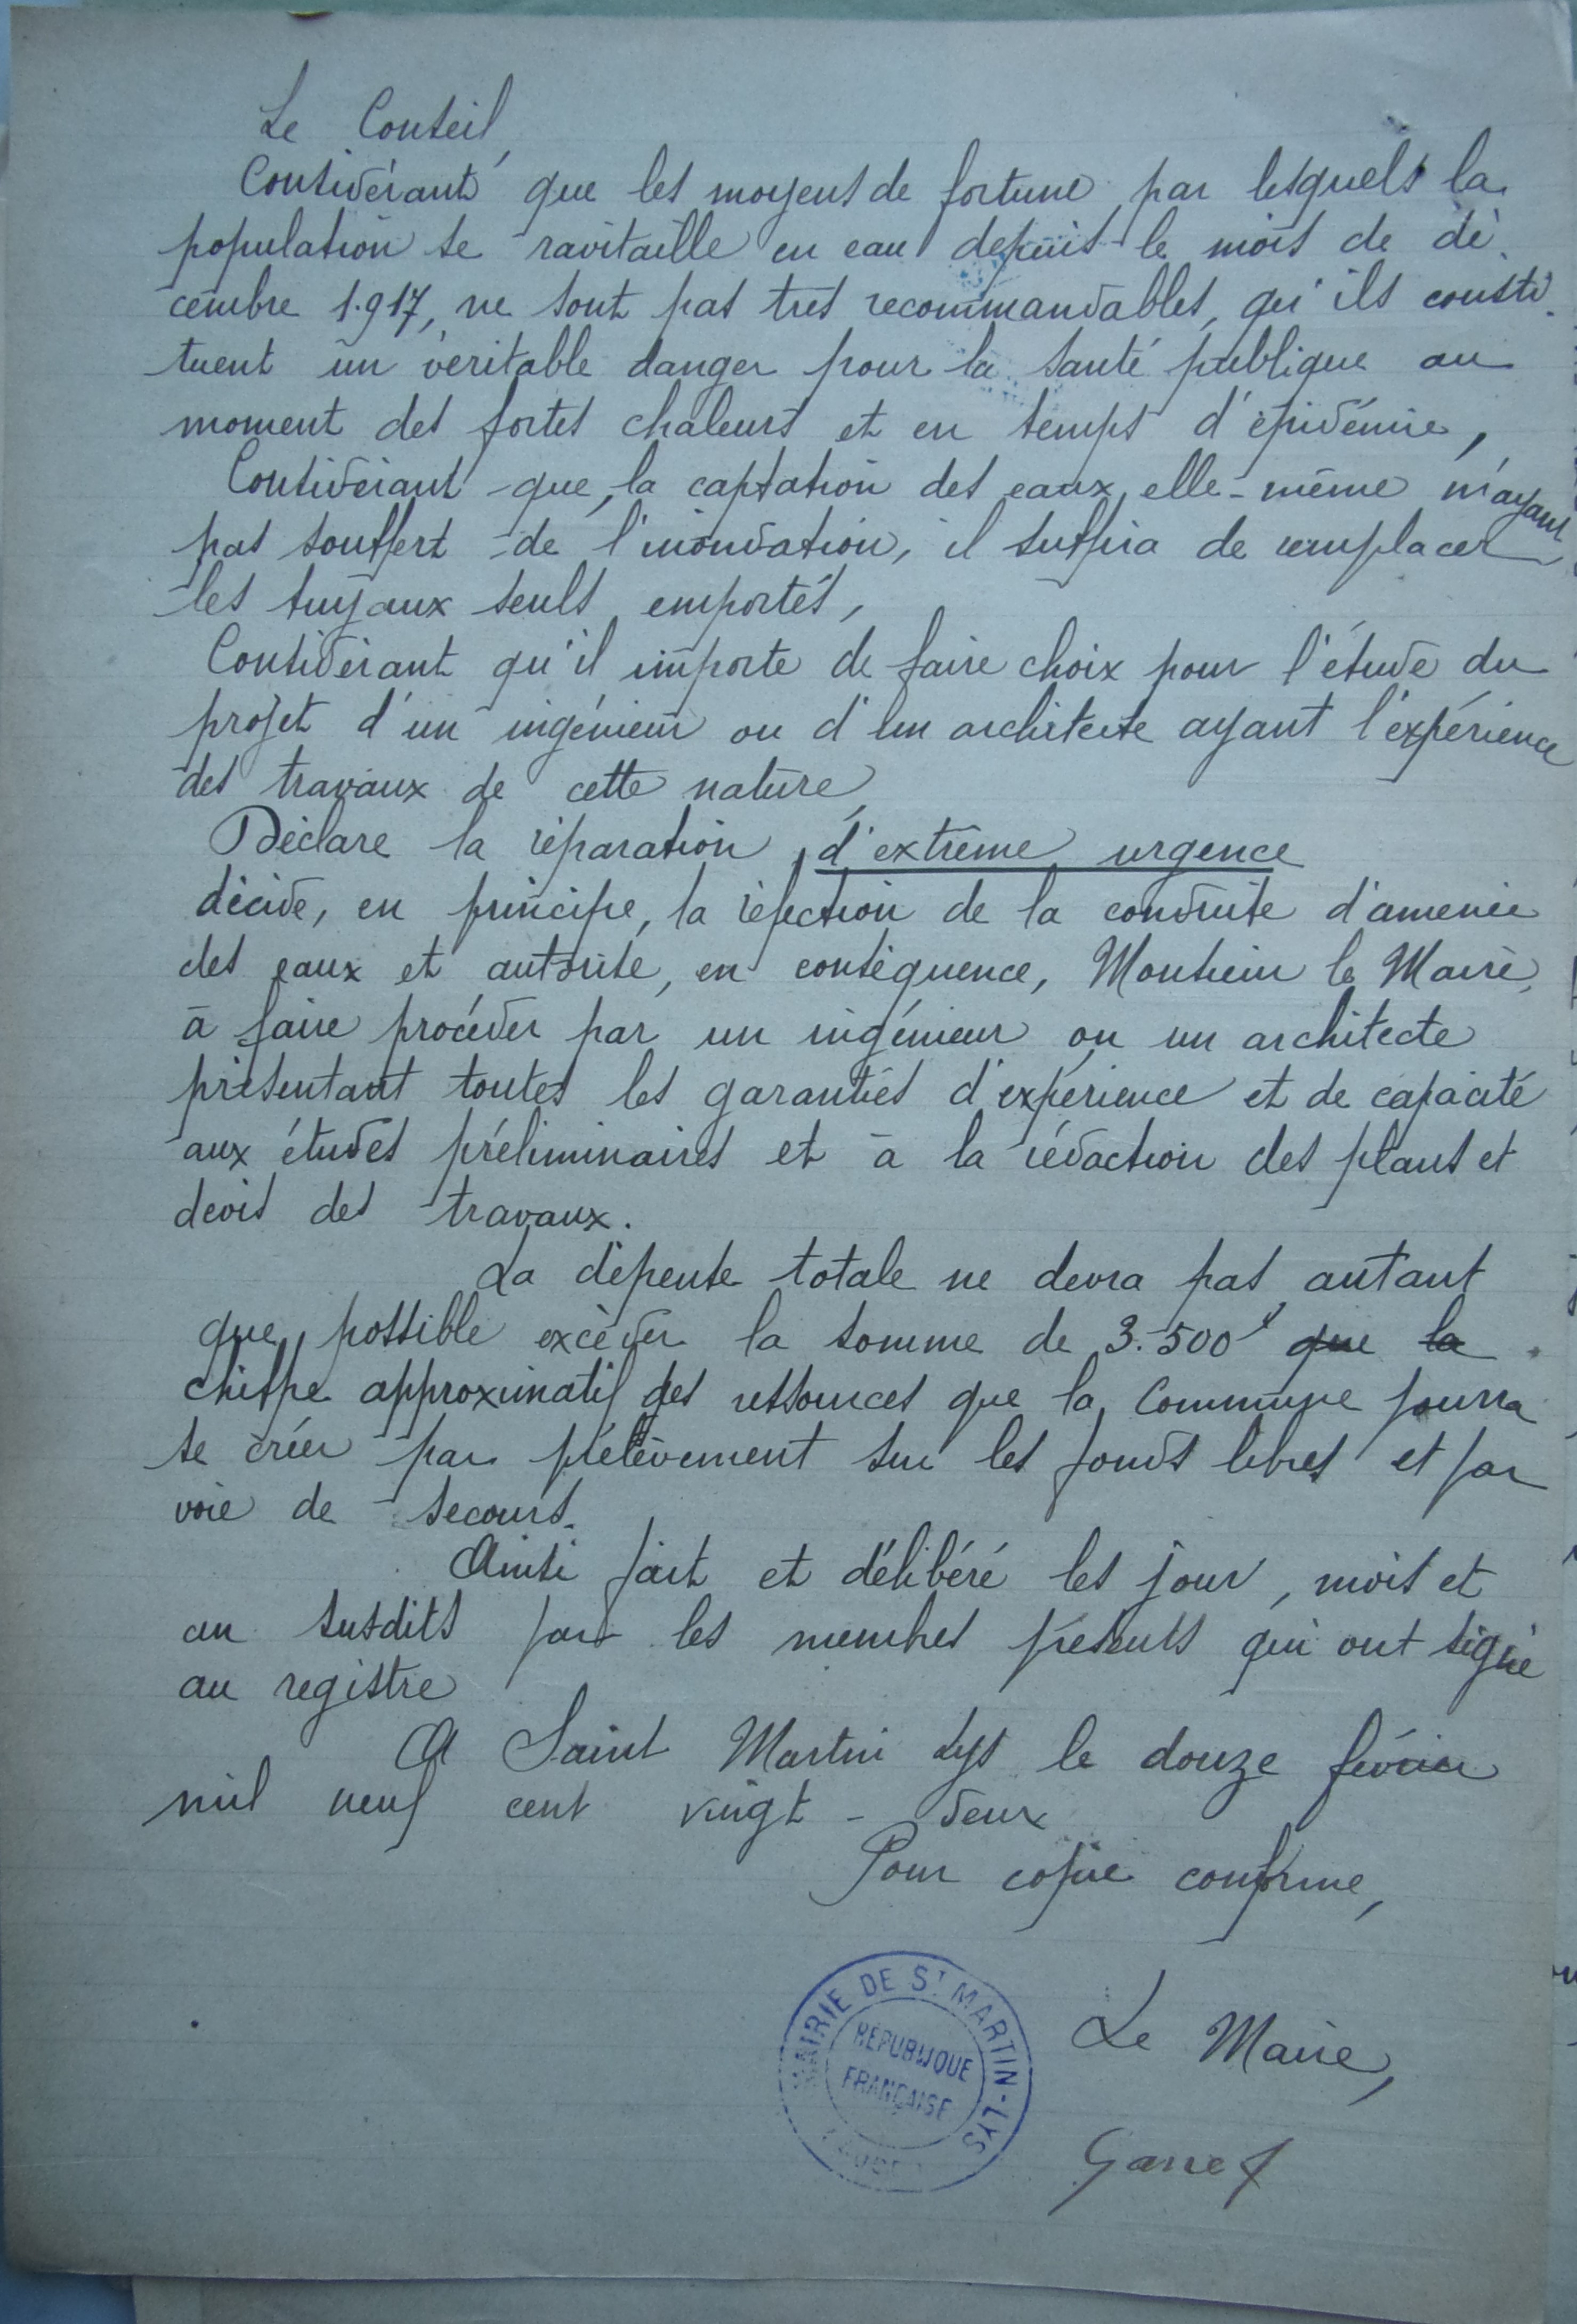 Le Conseil,
Considérant que les moyens de fortune par lesquels la
population se ravitaille en eau depuis le mois de dé-
cembre 1.917, ne sont pas très recommandables, qu'ils consti-
tuent un véritable danger pour la santé publique au
moment des fortes chaleurs et en temps d'épidémie,
Considérant que, la captation des eaux, elle-même n'ayant
pas souffert de l'inondation, il suffira de remplacer
les tuyaux seuls emportés,
Considérant qu'il importe de faire choix pour l'étude du
projet d'un ingénieur ou d'un architecte ayant l'expérience
des travaux de cette nature,
Déclare la réparation d'extrême urgence
décide, en principe, la réfection de la conduite d'amenée
des eaux et autorise, en conséquence, Monsieur le Maire,
à faire procéder par un ingénieur ou un architecte
présentant toutes les garanties d'expérience et de capacité
aux études préliminaires et à la rédaction des plans et
devis des travaux.
La dépense totale ne devra pas autant
que possible excéder la somme de 3.500f que la
chiffre approximatif des ressources que la Commune pourra
se créer par prélèvement sur les fonds libres et par
voie de secours.
Ainsi fait et délibéré les jour, mois et
an susdits par les membres présents qui ont signé
au registre
A Saint Martin Lys le douze février
mil neuf cent vingt-deux
Pour copie conforme,
Le Maire,
MAIRIE DE ST MARTIN-LYS
RÉPUBLIQUE
FRANÇAISE